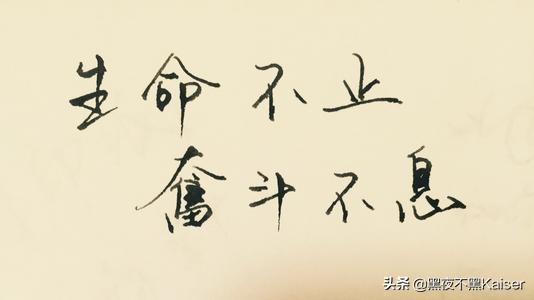 生命不止
奮斗不息
头条 @黑夜不黑Kaiser